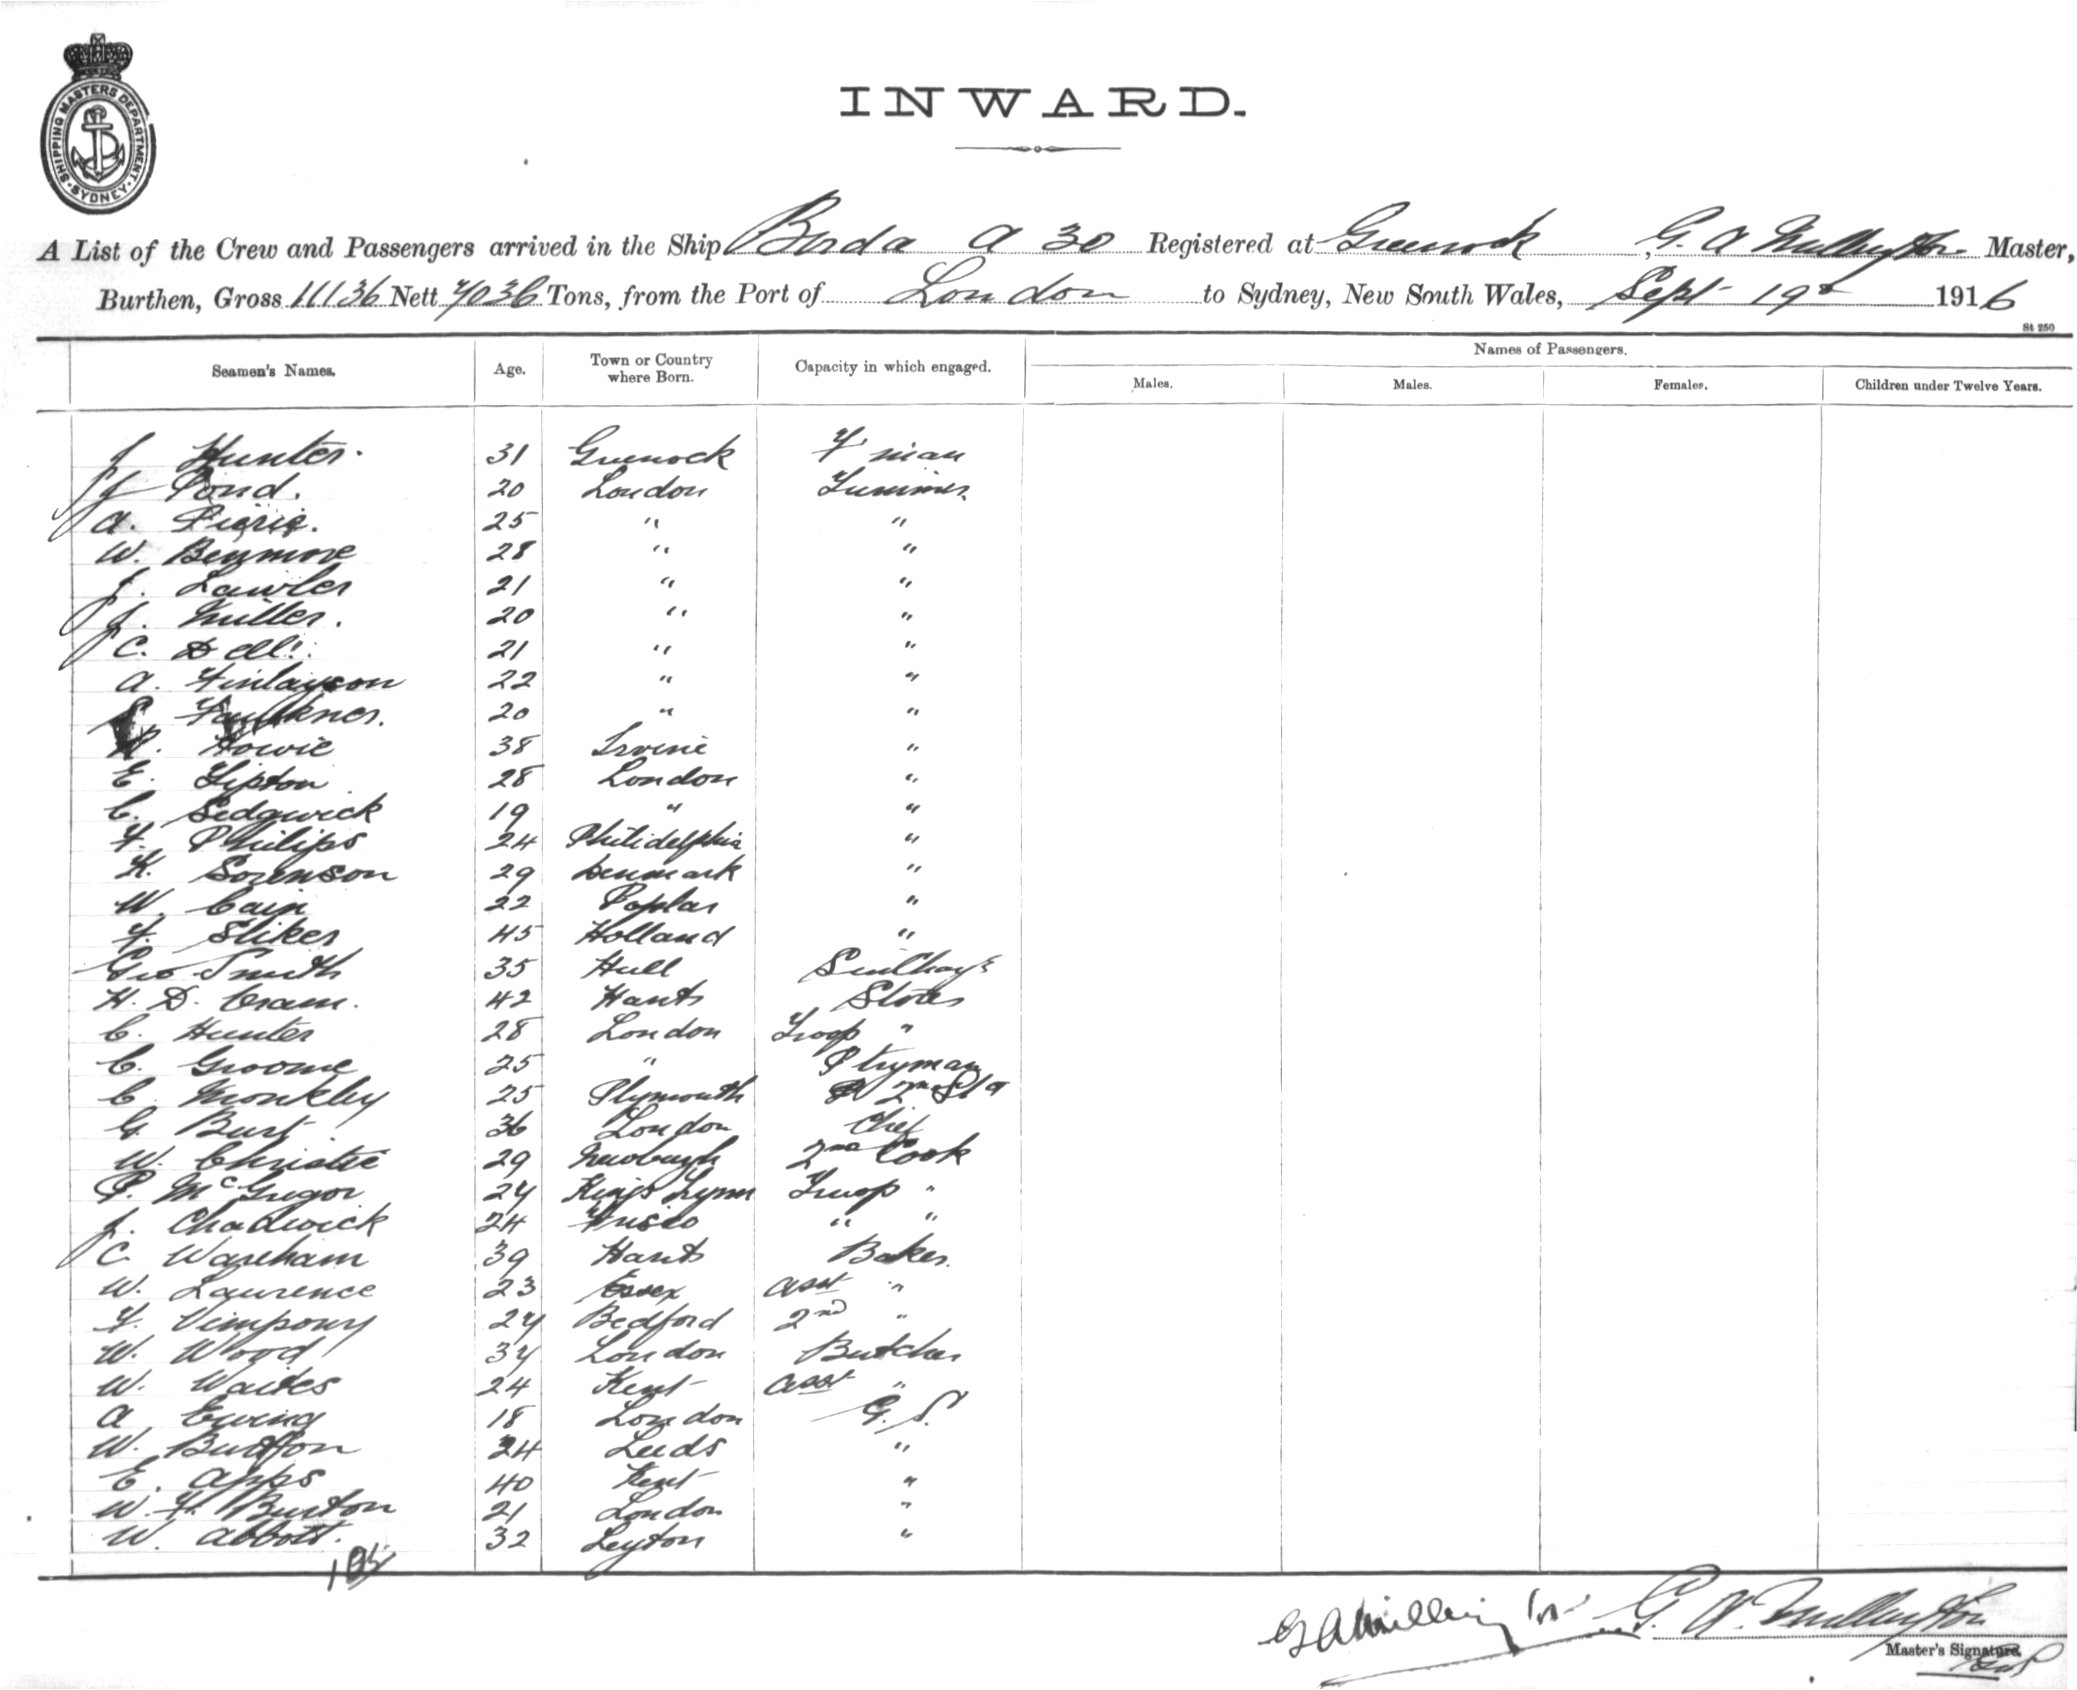 SHIPPING MASTERS DEPARTMENT
SYDNEY
INWARD.
A List of the Crew and Passengers arrived in the Ship Borda A 30 Registered at Greenock, G. A Millington Master,
Burthen, Gross 11136 Nett 7036 Tons, from the Port of London to Sydney, New South Wales, Sept 19th 1916
St 250
Seamen's Names. Age. Town or Country where Born. Capacity in which engaged. Names of Passengers.
Males. Males. Females. Children under Twelve Years.
J Hunter. 31 Greenock F'man
J Pond. 20 London Trimmer
A. Pierie. 25 " "
W. Benmore 28 " "
J. Lawler 21 " "
J. Miller. 20 " "
C. Dell. 21 " "
A. Finlayson 22 " "
Faulkner. 20 " "
Howie 38 Irvine "
E. Tipton 28 London "
C. Sedgwick 19 " "
F. Philips 24 Philidelphia "
K. Sorenson 29 Denmark "
W. Cain 22 Poplar "
F. Sliker 45 Holland "
Geo Smith 35 Hull
H. D. Cram. 42 Hants Stores
C. Hunter 28 London Troop "
C. Groome 25 " Ptryman
C. Monkley 25 Plymouth 2nd
G. Burt 36 London Chef
W. Christie 29 Newburgh 2nd Cook
P. McGregor 27 Kings Lynn Troop "
J. Chadwick 24 Frisco " "
C. Wareham 39 Hants Baker.
W. Laurence 23 Essex Asst "
F. Vimpony 27 Bedford 2nd "
W. Wood 37 London Butcher
W. Waites 24 Kent Asst "
A Ewing 18 London G. S.
W. Button 24 Leeds "
E. Apps 40 Kent "
W. H. Burton 21 London "
W. Abbott. 32 Leyton "
GA Millington G. A. Millington
Master's Signature.